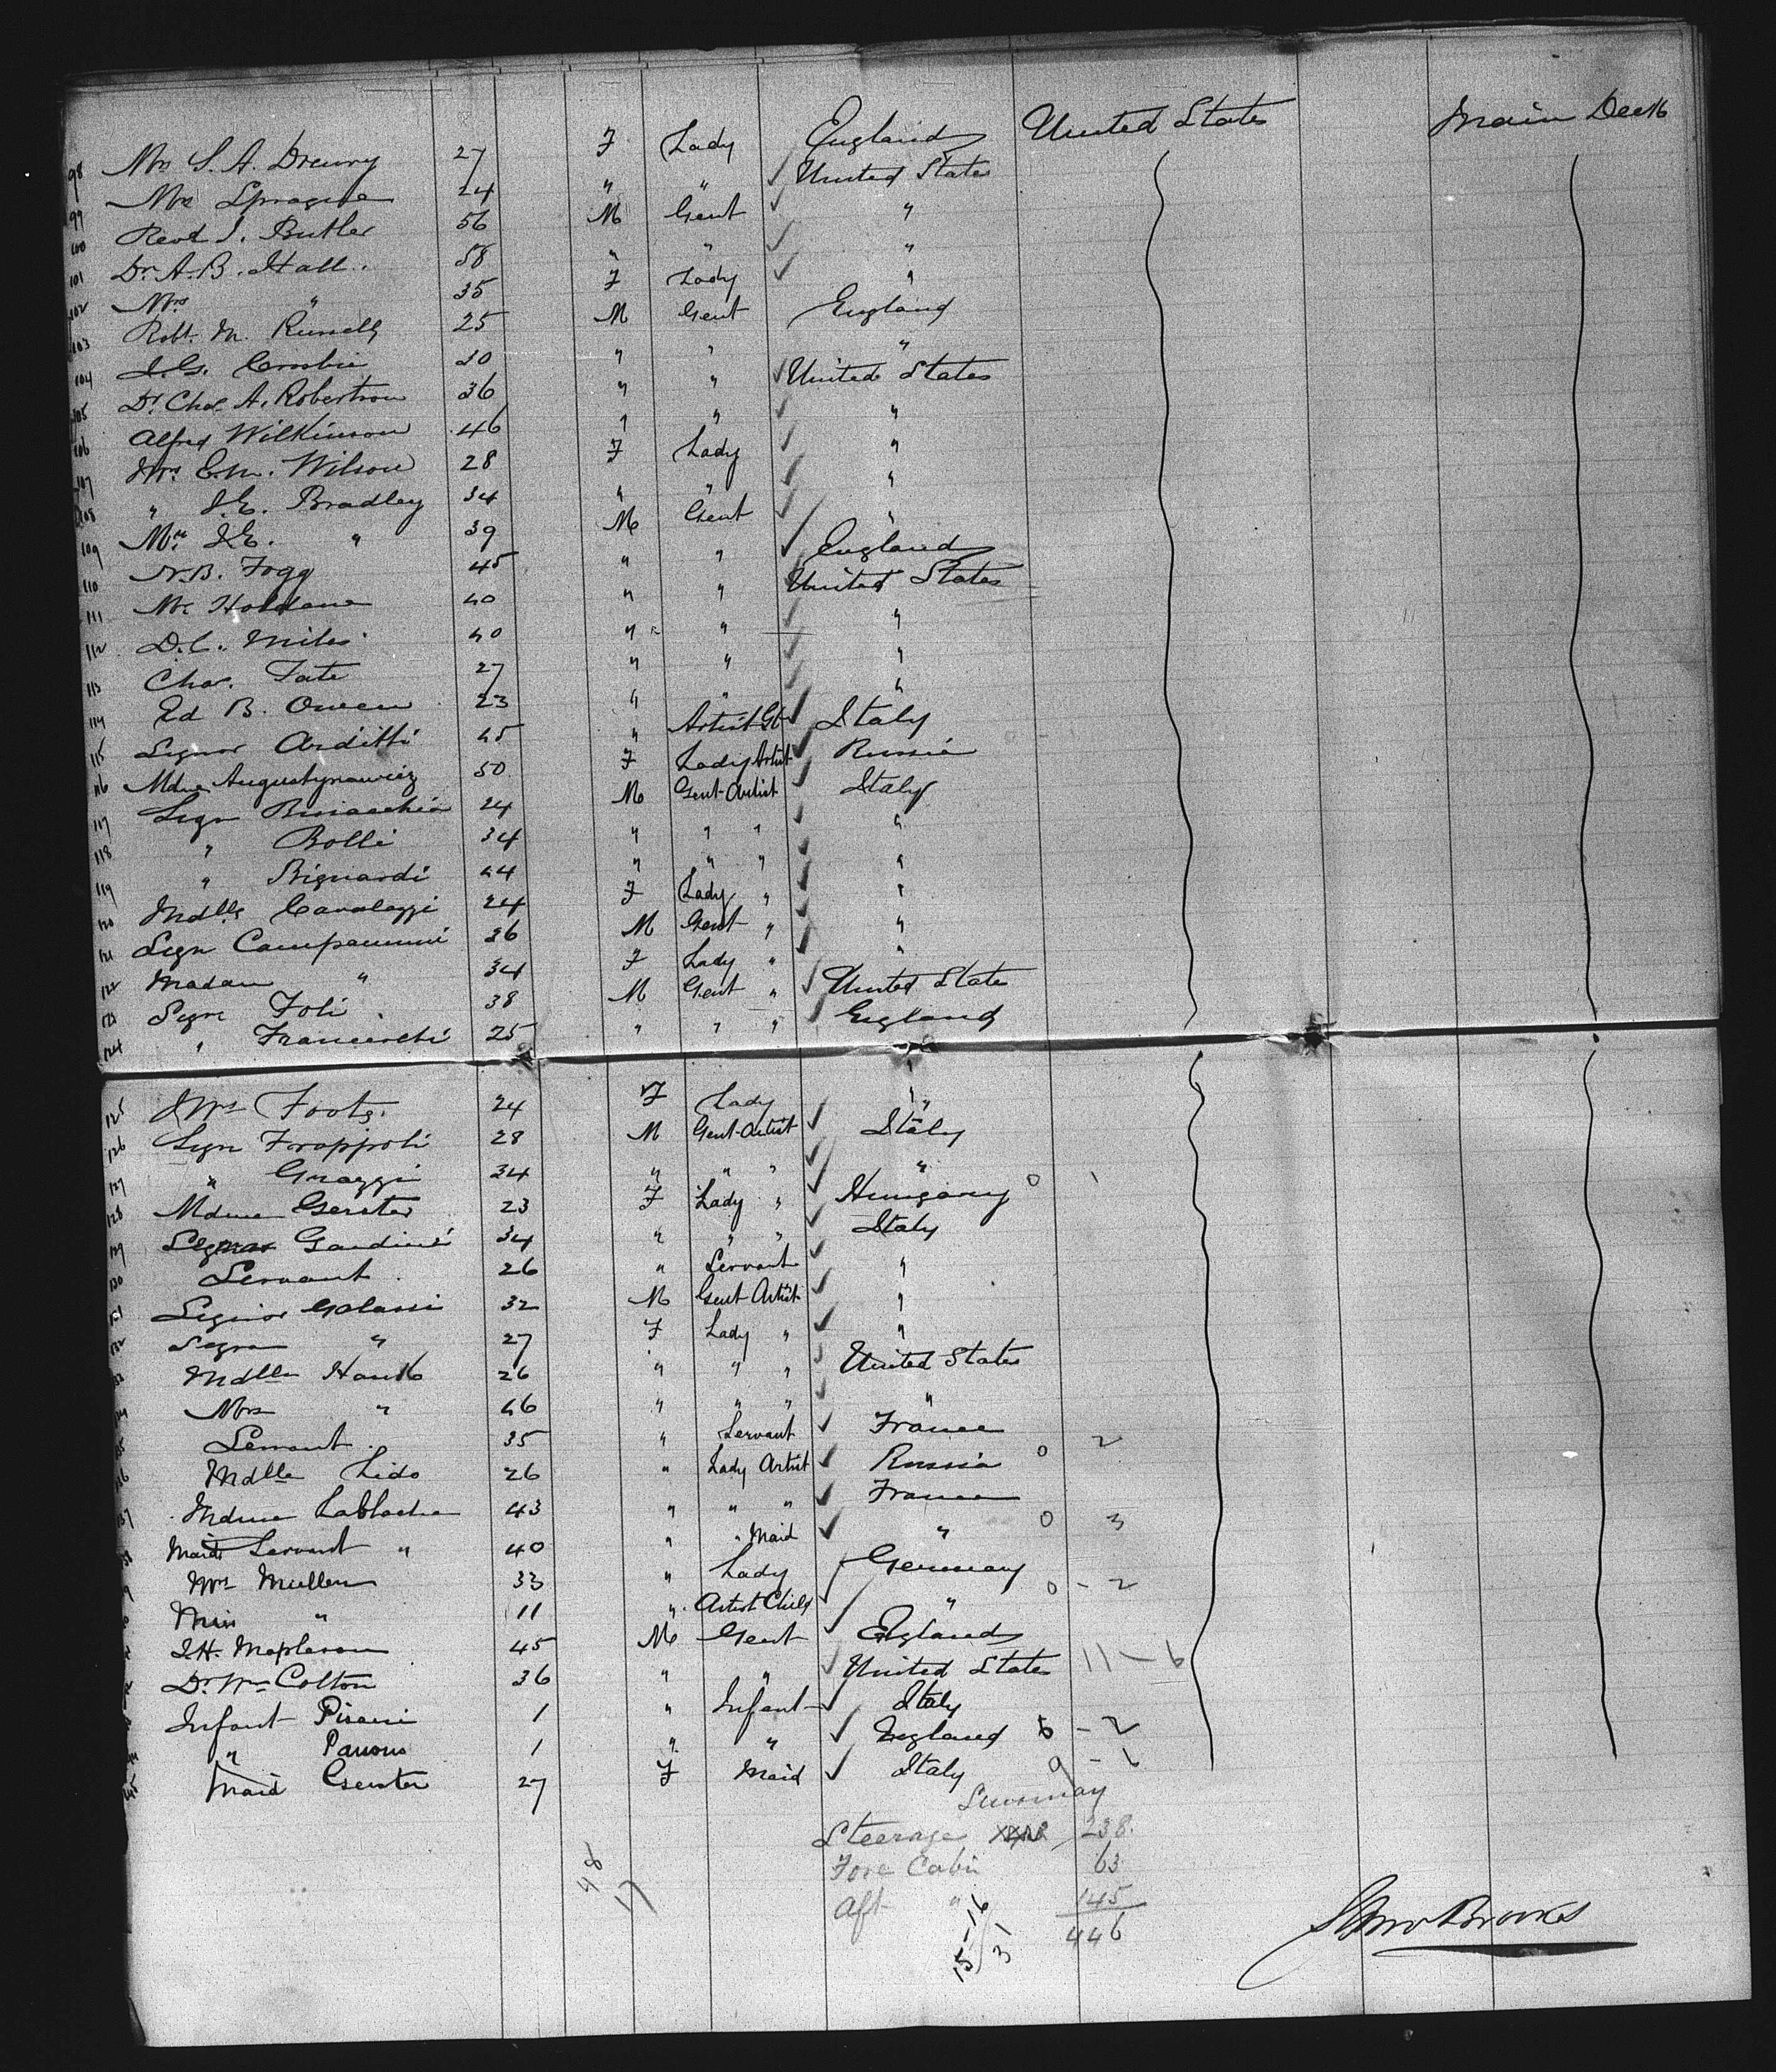 98 Mrs S. A. Drewry 27 F Lady England United States Main Deck
99 Mrs Sprague 24 " " United States
100 Revd J. Butler 56 M Gent "
101 Dr. A. B. Hall 58 " " "
102 Mrs " 35 F Lady "
103 Robt. M. Russell 25 M Gent England
104 30 " " "
105 Dr Chas A. Robertson 36 " " United States
106 Alfred Wilkinson 46 " " "
107 Mrs E. M. Wilson 28 F Lady "
108 " J. E. Bradley 34 " " "
109 Mr. J. E. " 39 M Gent "
110 N. B. Fogg 45 " " England
111 Mr Haldane 40 " " United States
112 D. C. Miles 40 " " "
113 Chas. Tate 27 " " "
114 Ed B. Owen 23 " " "
115 Signor Arditti 45 " Artist Gt Italy
116 Mdme Augustynawicz 50 F Lady Artist Russia
117 Sigr 24 M Gent Artist Italy
118 " Bolli 34 " " " "
119 " Bignardi 44 " " " "
120 Mdlle Cavalazzi 24 F Lady " "
121 Sigr Campanini 36 M Gent " "
122 Madam " 34 F Lady " "
123 Sigr Foli 38 M Gent " United States
124 " Franceschi 25 " " " England
125 Mrs Foote 24 F Lady "
126 Sigr Frappoli 28 M Gent Artist Italy
127 " Grazzi 34 " " " "
128 Mdme Gerster 23 F Lady " Hungary 0 1
129 Gardini 34 " " " Italy
130 Servant 26 " Servant "
131 Signor Galassi 32 M Gent Artist "
132 Sigra " 27 F Lady " "
133 Mdlle Hauk 26 " " " United States
134 Mrs " 46 " " " "
135 Servant 35 " Servant France
136 Mdlle Lido 26 " Lady Artist Russia 0 2
137 Mdme Lablache 43 " " " France
138 Maid Servant " 40 " " Maid " 0 3
139 Mrs Muller 33 " Lady Germany
140 Miss " 11 " Artist Child " 0 - 2
J. H. Mapleson 45 M Gent England
Dr. Wm Colton 36 " " United States 11 - 6
Infant Pisani 1 " Infant Italy
" Parsons 1 " " England 5 - 2
145 Maid Gerster 27 F Maid Italy 9 - 6
Summary
Steerage 238.
48 Fore Cabin 63
17 Aft " 145
446
15 - 16
31
Brooks